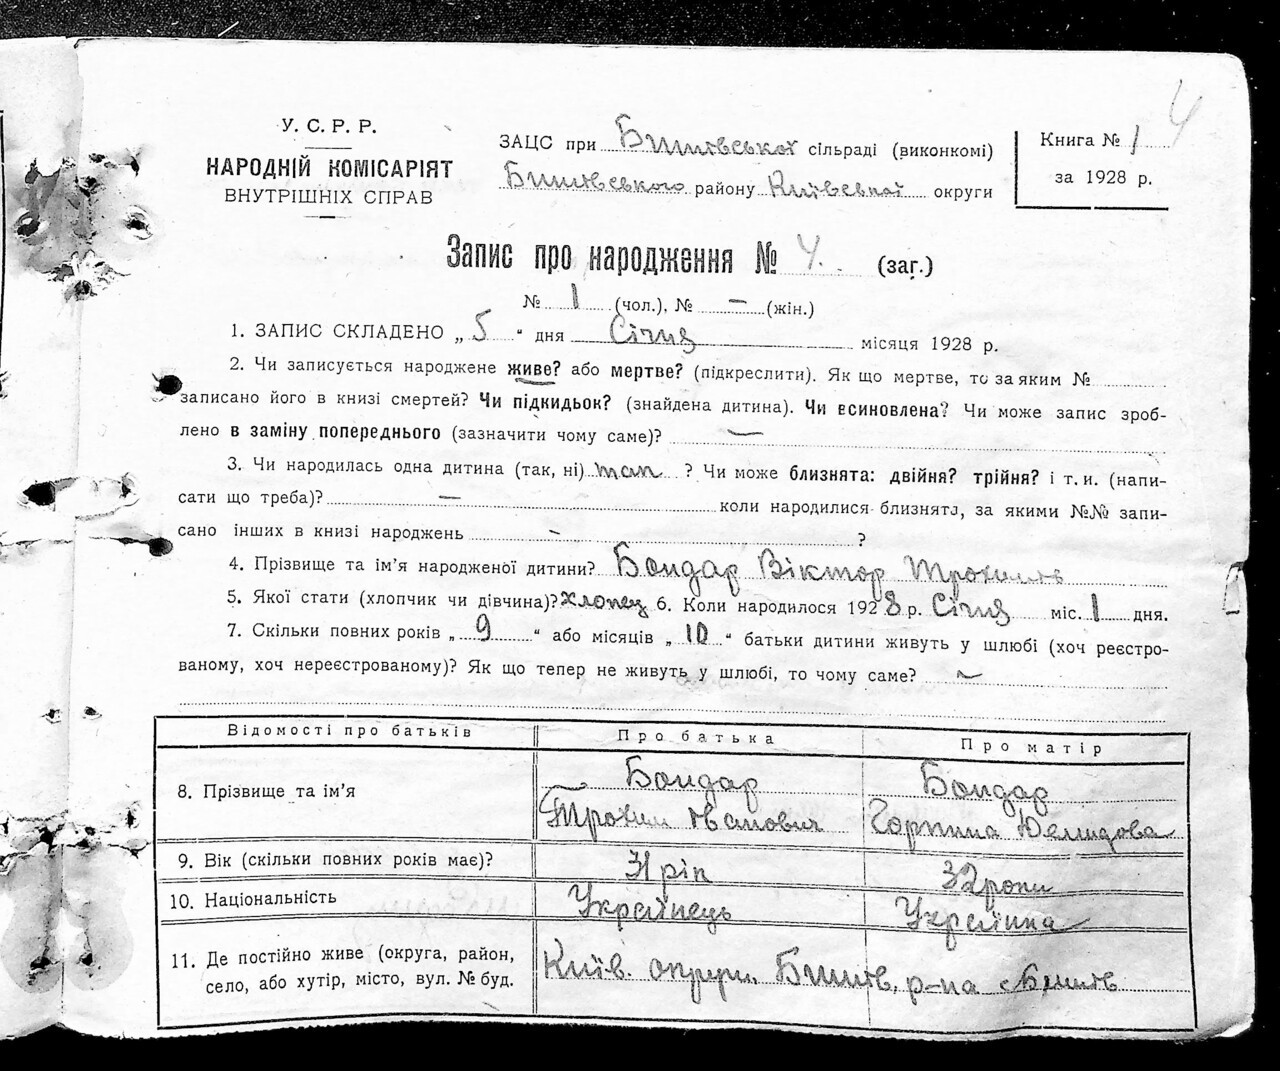 4
У. С. Р. Р.
НАРОДНІЙ КОМІСАРІЯТ
ВНУТРІШНІХ СПРАВ
ЗАЦС при Бишівської сільраді (виконкомі)
Бишівського району Київської округи
Книга № 1
за 1928 р.
Запис про народження № 4. (заг.)
№ 1 (чол.), № — (жін.)
1. ЗАПИС СКЛАДЕНО „ 5 “ дня Січня місяця 1928 р.
2. Чи записується народжене живе? або мертве? (підкреслити). Як що мертве, то за яким №
записано його в книзі смертей? Чи підкидьок? (знайдена дитина). Чи всиновлена? Чи може запис зроб-
лено в заміну попереднього (зазначити чому саме)? —
3. Чи народилась одна дитина (так, ні) так ? Чи може близнята: двійня? трійня? і т. и. (напи-
сати що треба)? — коли народилися близнята, за якими №№ запи-
сано інших в книзі народжень — ?
4. Прізвище та ім’я народженої дитини? Бондар Віктор Трохимів
5. Якої стати (хлопчик чи дівчина)? хлопец 6. Коли народилося 1928 р. Січня міс. 1 дня.
7. Скільки повних років „ 9 “ або місяців „ 10 “ батьки дитини живуть у шлюбі (хоч реєстро-
ваному, хоч нереєстрованому)? Як що тепер не живуть у шлюбі, то чому саме? —
Відомості про батьків Про батька Про матір
8. Прізвище та ім’я Бондар Бондар
Трохим Іванович Горпина Демидова
9. Вік (скільки повних років має)? 31 рік 32 роки
10. Національність Українець Українка
11. Де постійно живе (округа, район,
село, або хутір, місто, вул. № буд.
Київ. округи. Бишів. р-на с Бишів